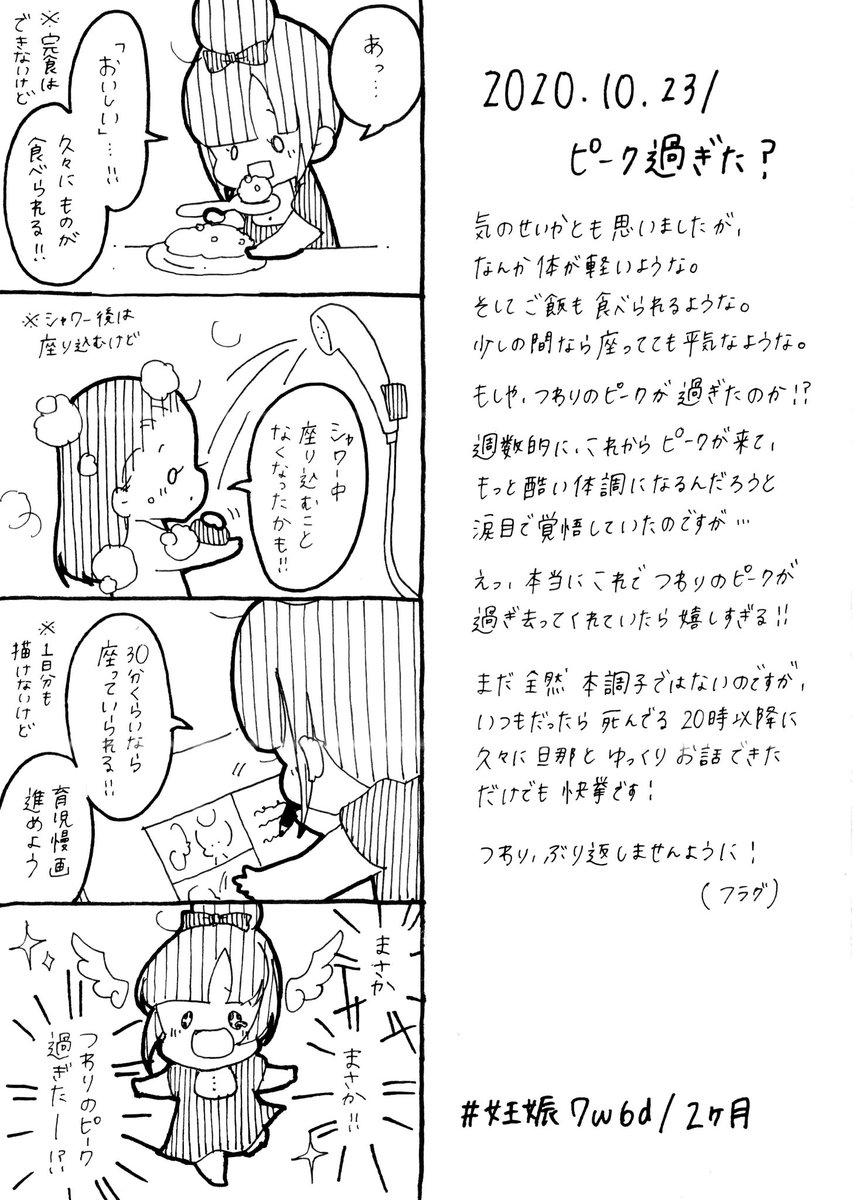 あっ…
「おいしい」…!!
久々にものが
食べられる!!
※完食は
できないけど
※シャワー後は
座り込むけど
シャワー中
座り込むこと
なくなったかも!!
30分くらいなら
座っていられる!!
※1日分も
描けないけど
育児漫画
進めよう
まさか
まさか!!
つわりのピーク
過ぎたー!?
2020.10.23/
ピーク過ぎた?
気のせいかとも思いましたが、
なんか体が軽いような。
そしてご飯も食べられるような。
少しの間なら座ってても平気なような。
もしや、つわりのピークが過ぎたのか!?
週数的に、これからピークが来て、
もっと酷い体調になるんだろうと
涙目で覚悟していたのですが…
えっ、本当にこれでつわりのピークが
過ぎ去ってくれていたら嬉しすぎる!!
まだ全然本調子ではないのですが、
いつもだったら死んでる20時以降に
久々に旦那とゆっくりお話できた
だけでも快挙です!
つわり、ぶり返しませんように!
(フラグ)
#妊娠7w6d/2ヶ月